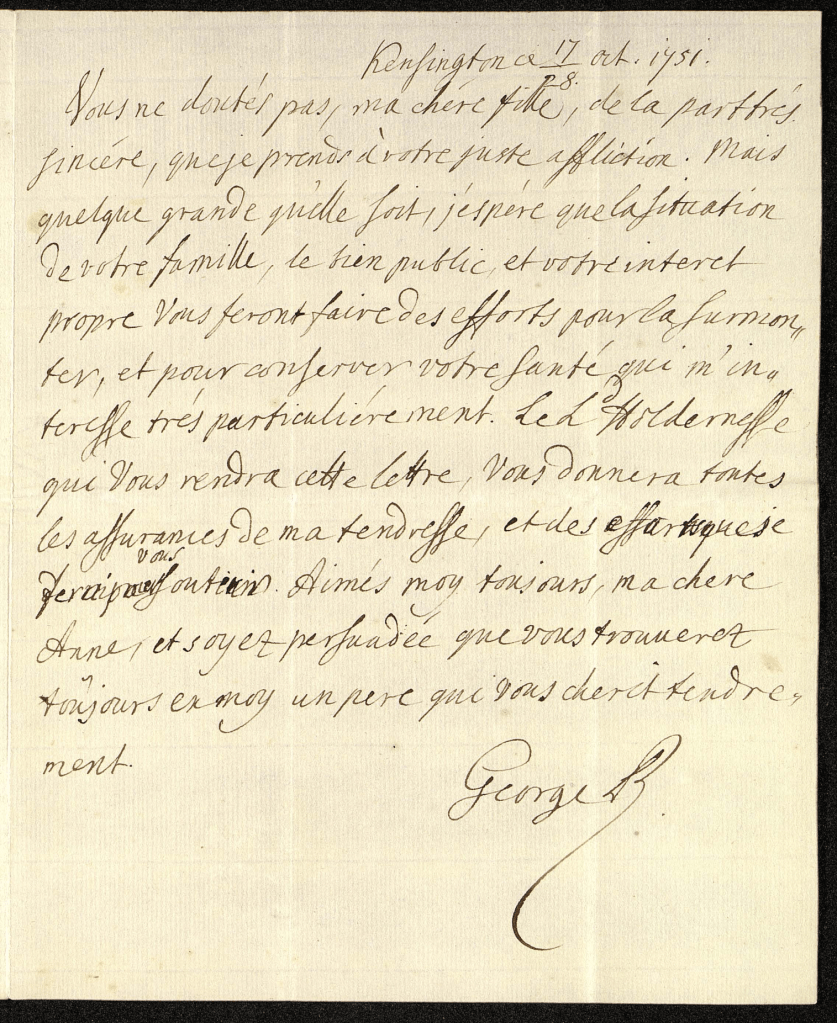 Kensington ce 17/28. oct. 1751.
Vous ne doutés pas, ma chére fille, de la part trés
sincére, que je prends à votre juste affliction. Mais
quelque grande qu'elle soit, j'éspére que la situation
de votre famille, le bien public, et votre interet
propre Vous feront faire des efforts pour la surmon„
ter, et pour conserver votre santé qui m'in„
teresse trés particuliérement. Le Ld Holdernesse
qui Vous rendra cette lettre, Vous donnera toutes
les assurances de ma tendresse, et des efforts que je
ferai pour vous soutenir. Aimés moy toujours, ma chere
Anne, et soyez persuadée que vous trouverez
toûjours en moy un pere qui Vous cherit tendre„
ment.
George R